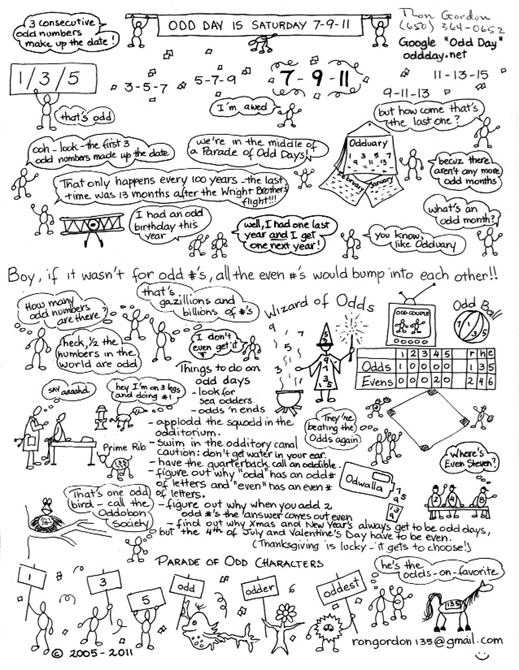 3 consecutive
odd numbers
make up the date!
ODD DAY IS SATURDAY 7-9-11
Ron Gordon
(650) 364-0652
Google "Odd Day"
oddday.net
1/3/5
3-5-7
5-7-9
7-9-11
9-11-13
11-13-15
that's odd
I'm awed
but how come that's
the last one?
ooh-look-the first 3
odd numbers made up the date
we're in the middle of
a Parade of Odd Days!
Odduary
1 3 5
February
January
becuz there
aren't any more
odd months
That only happens every 100 years-the last
time was 13 months after the Wright Brothers
flight!!!
I had an odd
birthday this
year
well, I had one last
year and I get
one next year!
what's an
odd month?
you know,
like Odduary
Boy, if it wasn't for odd #'s, all the even #'s would bump into each other!!
How many
odd numbers
are there?
that's
gazillions and
billions of #'s
heck, ½ the
numbers in the
world are odd
I don't
even get it
Wizard of Odds
9 7
7 5
3
1
3
9
ODD COUPLE
Odd Ball
1 3 5
1 2 3 4 5 r h e
Odds 1 0 0 0 0 1 3 5
Evens 0 0 0 2 0 2 4 6
say aaahd
hey I'm on 3 legs
and doing #1
Things to do on
odd days
- look for
sea odders
- odds 'n ends
- applodd the squodd in the
odditorium.
- swim in the odditory canal
caution: don't get water in your ear.
- have the quarterback call an oddible.
- figure out why "odd" has an odd #
of letters and "even" has an even #
of letters.
- figure out why when you add 2
odd #'s the answer comes out even
- find out why Xmas and New Year's always get to be odd days,
but the 4th of July and Valentine's Day have to be even.
(Thanksgiving is lucky - it gets to choose!)
They're
beating the
Odds again
Prime Rib
Odwalla
1
3
5
Where's
Even Steven?
2 4 6
That's one odd
bird - call the
Oddobon
Society
PARADE OF ODD CHARACTERS
he's the
odds-on-favorite
1
3
5
odd
odder
oddest
135
rongordon135@gmail.com
© 2005-2011